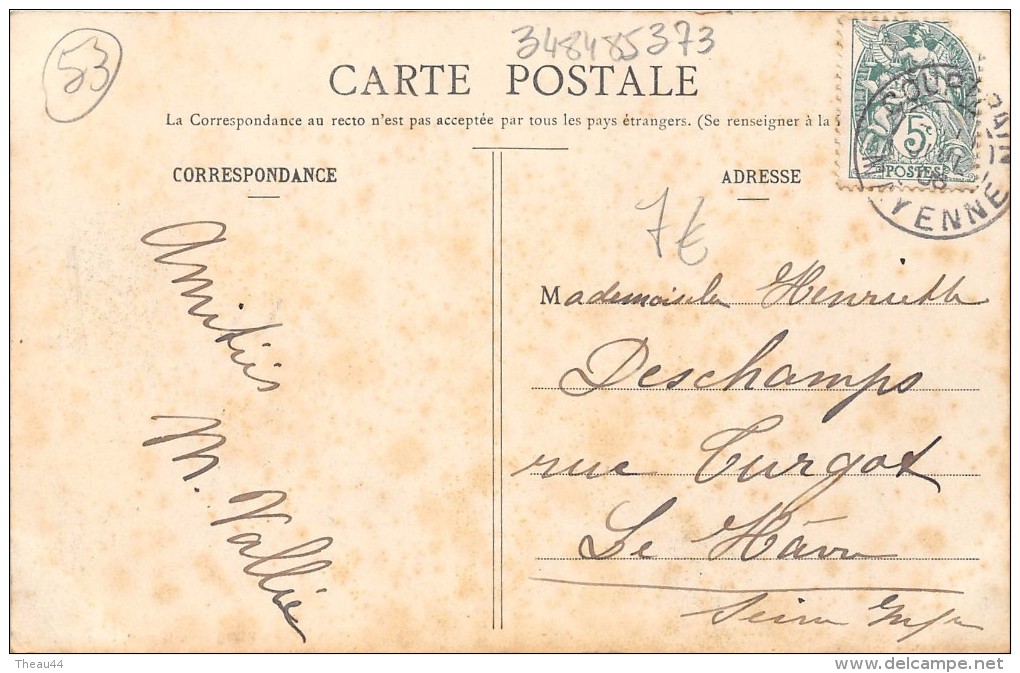 53
348485373
CARTE POSTALE
La Correspondance au recto n'est pas acceptée par tous les pays étrangers. (Se renseigner à la
CORRESPONDANCE
ADRESSE
5c
POSTES
MAYENNE
7€
Amitiés
M. Vallée
Mademoiselle Henriette
Deschamps
rue Turgot
Le Hâvre
Seine Infre
Theau44
www.delcampe.net